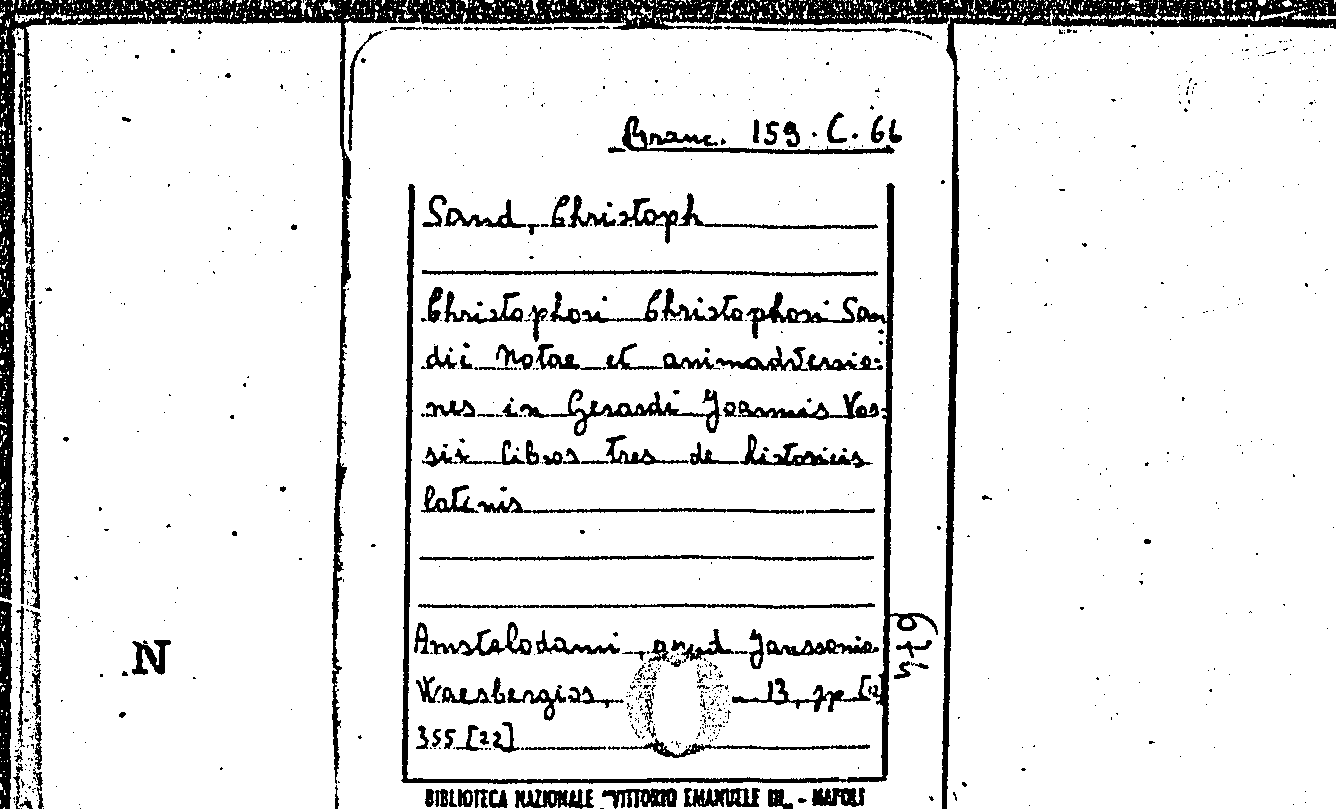 Branc. 159. C. 66
Sand, Christoph
Christophori Christophori San
dii Notae et animadversio=
nes in Gerardi Joannis Vos=
sii libros tres de historicis
latinis
Amstelodami, apud Janssonio-
Waesbergios, 13, pp [12]
355 [22]
N
BIBLIOTECA NAZIONALE "VITTORIO EMANUELE III" - NAPOLI